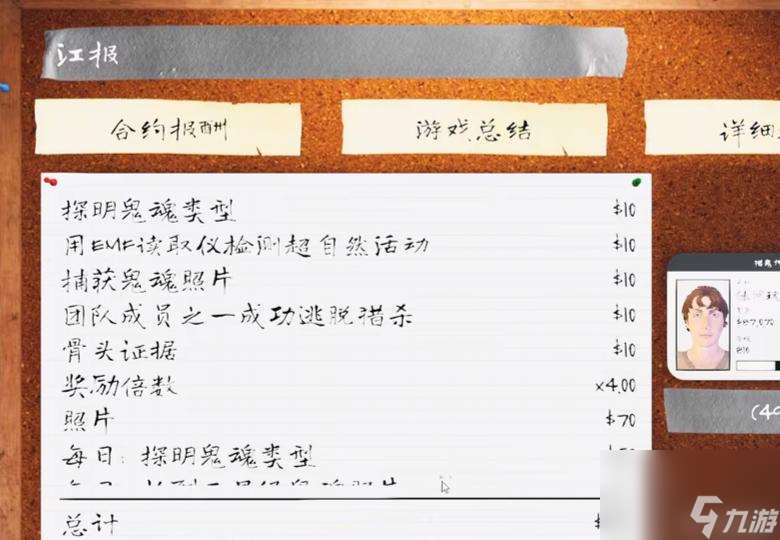 江报
合约报酬
游戏总结
详细
探明鬼魂类型 $10
用EMF读取仪检测超自然活动 $10
捕获鬼魂照片 $10
团队成员之一成功逃脱猎杀 $10
骨头证据 $10
奖励倍数 x4.00
照片 $70
每日: 探明鬼魂类型
总计
九游